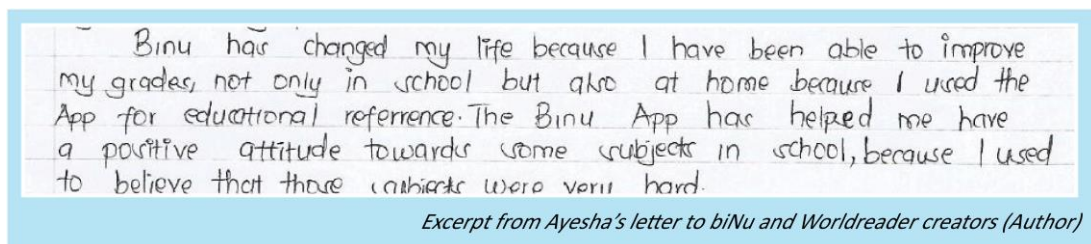 Binu has changed my life because I have been able to improve
my grades, not only in school but also at home because I used the
App for educational referrence. The Binu App has helped me have
a positive attitude towards some subjects in school, because I used
to believe that those subjects were very hard.
Excerpt from Ayesha's letter to biNu and Worldreader creators (Author)